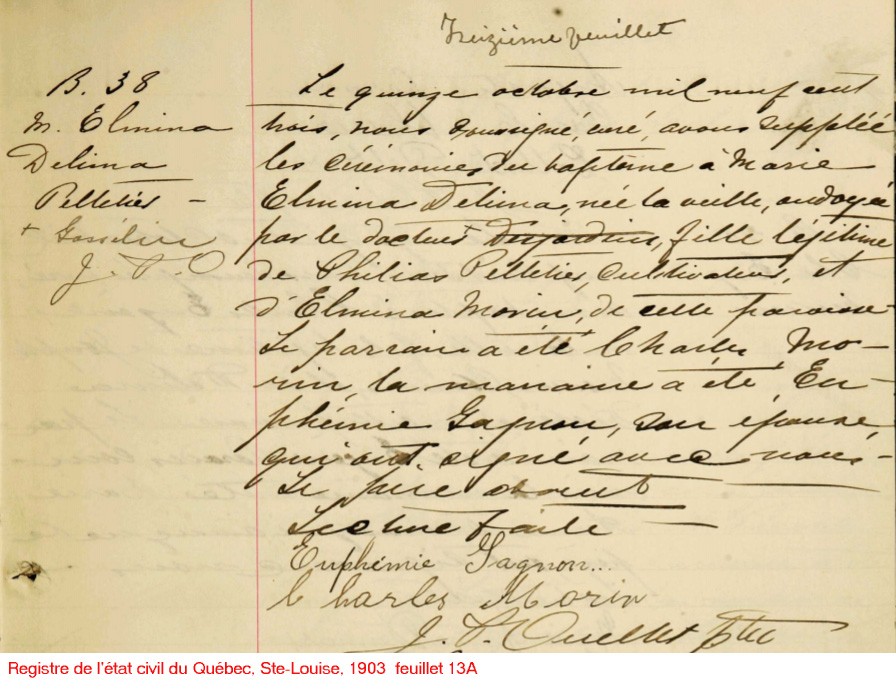 Treizième feuillet
B. 38
M. Elmina
Delima
Pelletier –
+ Gosselin
J. P. O
Le quinze octobre mil neuf cent
trois, nous soussigné, curé, avons suppléé
les cérémonies du baptême à Marie
Elmina Delima, née la veille, ondoyée
par le docteur Desjardins, fille légitime
de Philias Pelletier, cultivateur, et
d'Elmina Morin, de cette paroisse
Le parrain a été Charles Mo-
rin, la marraine a été Eu-
phémie Gagnon, son épouse,
qui ont signé avec nous-
Le père absent
Lecture faite
Euphémie Gagnon...
Charles Morin
J. P. Ouellet Ptre
Registre de l'état civil du Québec, Ste-Louise, 1903 feuillet 13A